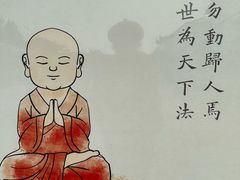 勿動歸人焉
世為天下法